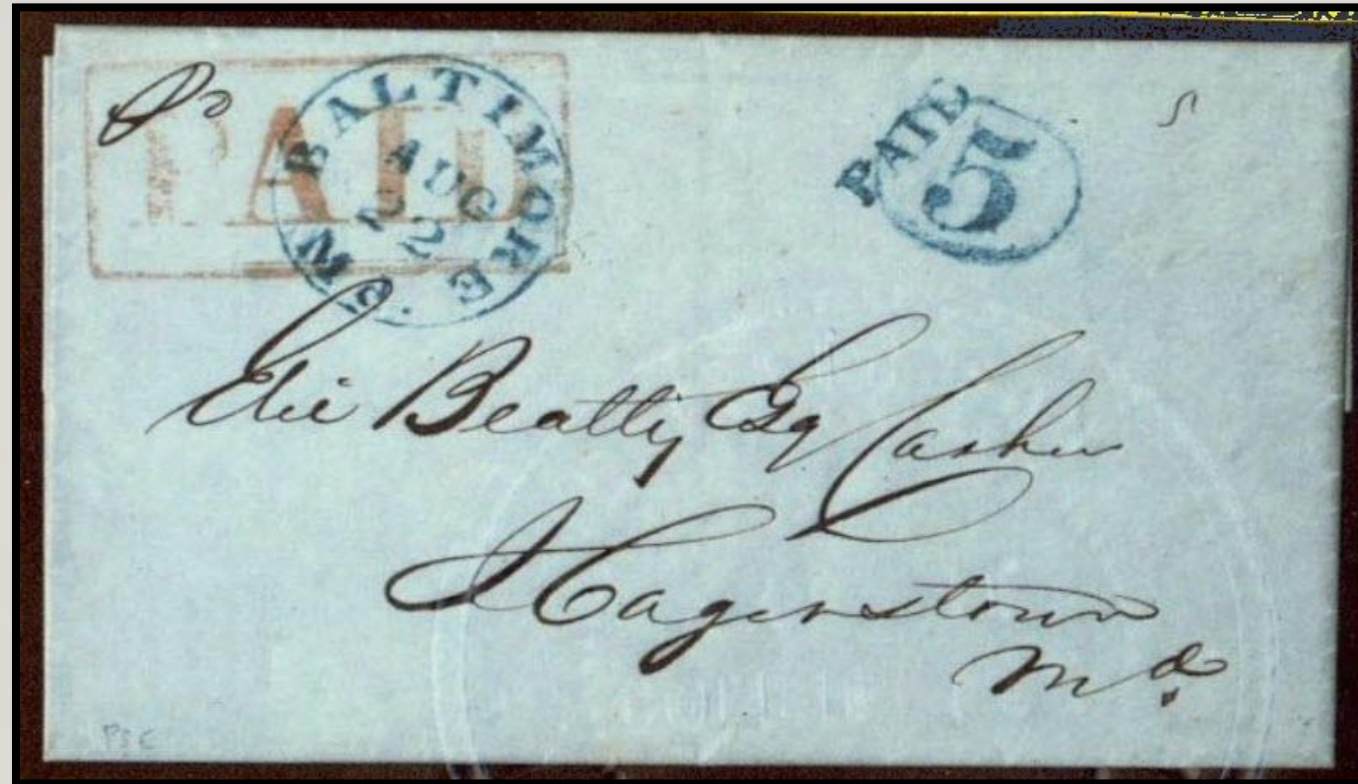 PAID
BALTIMORE Md.
AUG
22
PAID
5
Elie Beatty Esq Cashr
Hagerstown
Md